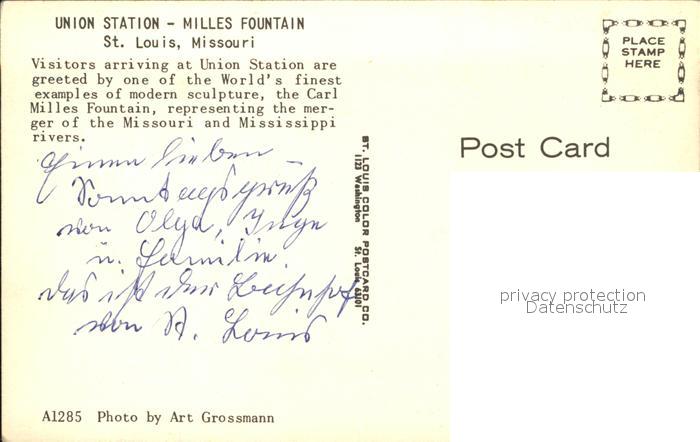 UNION STATION - MILLES FOUNTAIN
St. Louis, Missouri
Visitors arriving at Union Station are
greeted by one of the World's finest
examples of modern sculpture, the Carl
Milles Fountain, representing the mer-
ger of the Missouri and Mississippi
rivers.
Einen lieben
Sonntagsgruß
von Olga, Inge
u. Familie.
das ist der Bahnhof
von St. Louis
A1285 Photo by Art Grossmann
ST. LOUIS COLOR POSTCARD CO.
1123 Washington St. Louis 63101
PLACE
STAMP
HERE
Post Card
privacy protection
Datenschutz